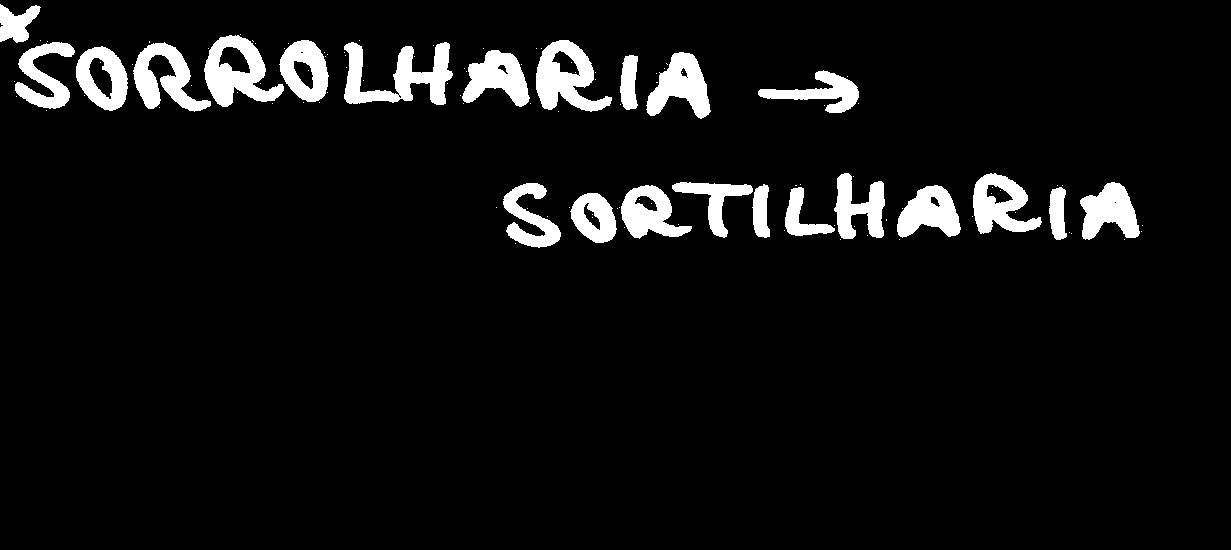 *SORROLHARIA →
SORTILHARIA